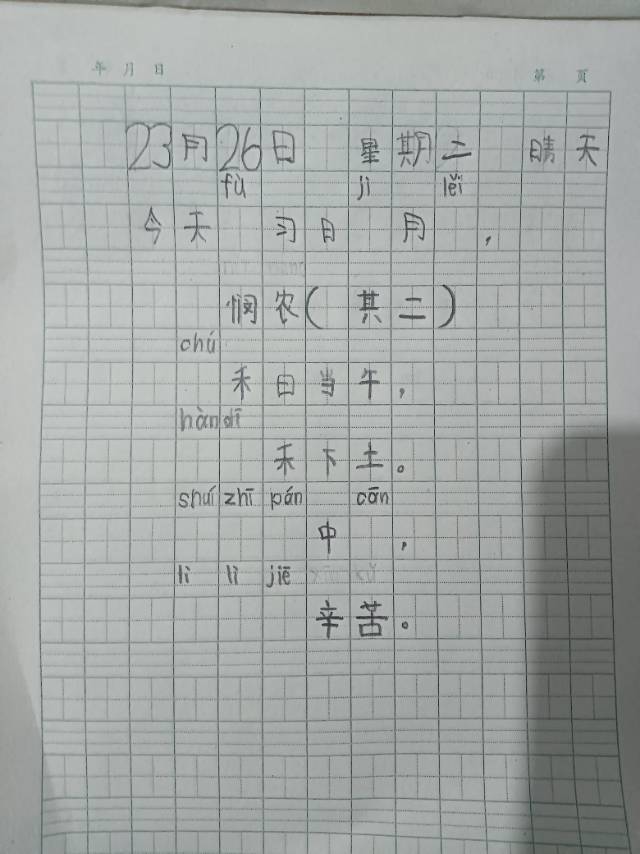 年 月 日 第 页
23月26日 星期二 晴天
fù jì lěi
今天 习日 月，
悯农(其二)
chú
禾日当午，
hàn dī
禾下土。
shuí zhī pán cān
中，
lì lì jiē
辛苦。